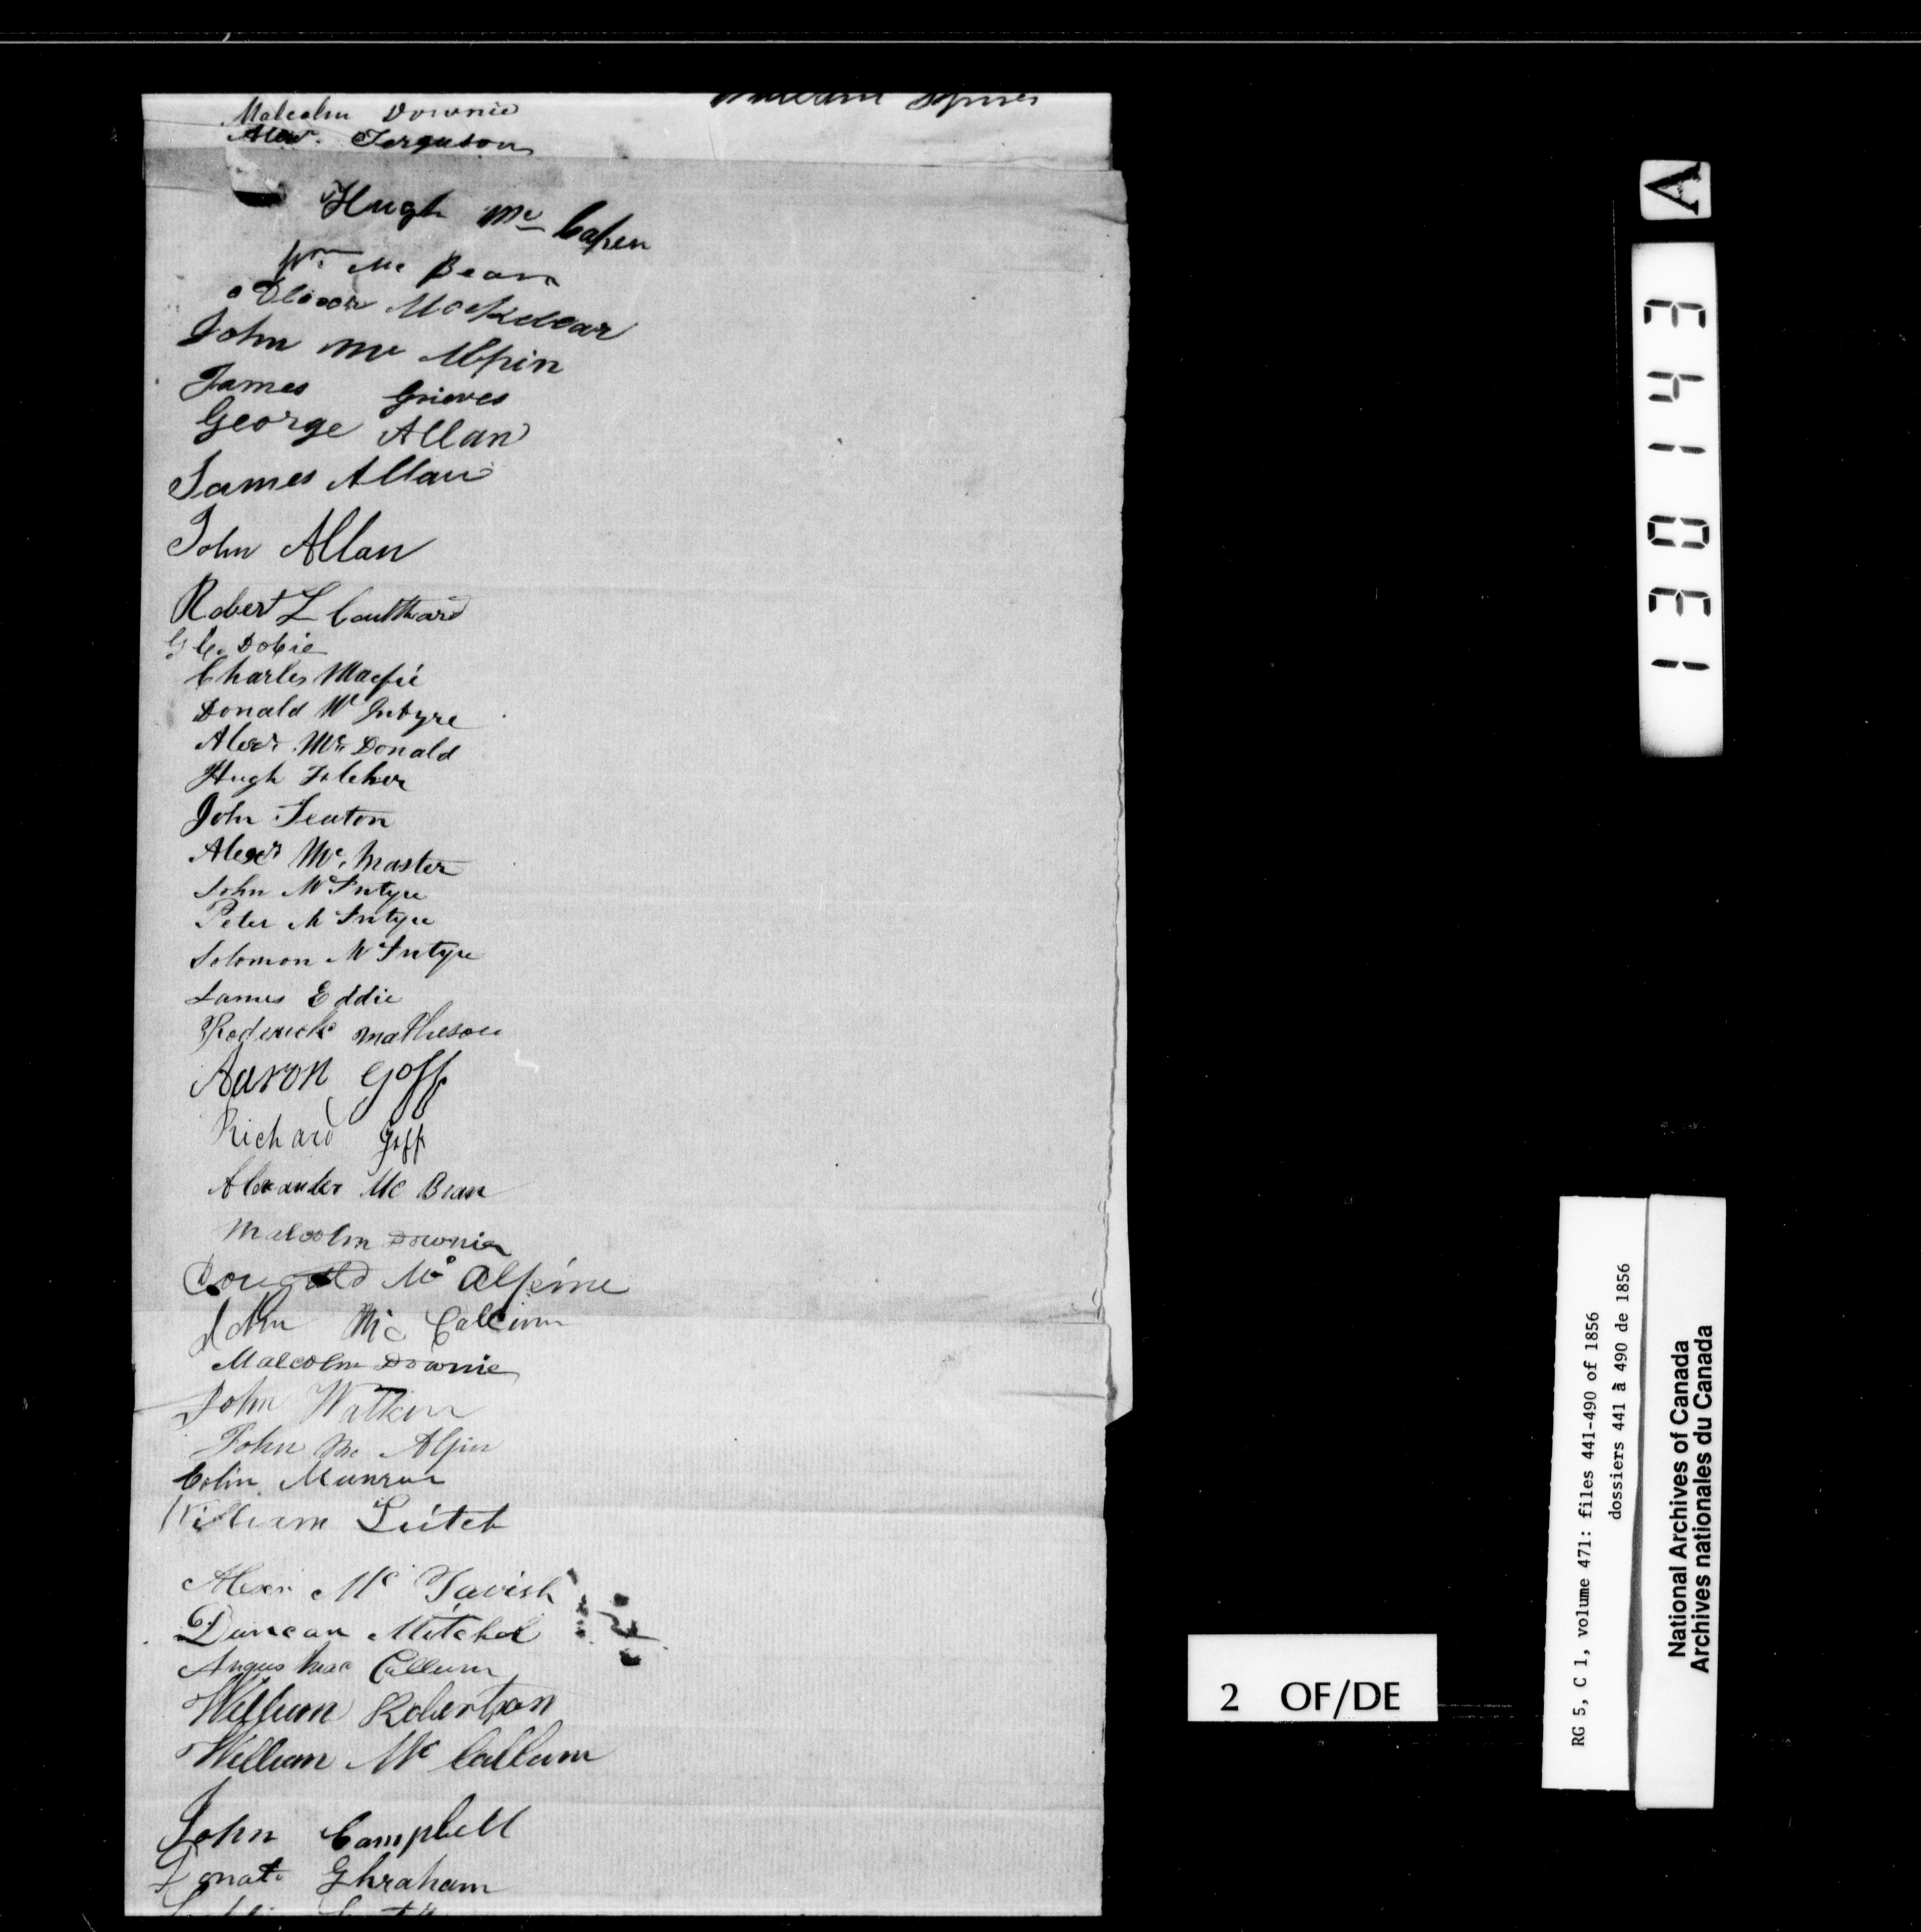 Malcolm Downie
Alexr. Ferguson
Hugh Mc
Wm Mc Bean
John Mc Alpin
James Grieves
George Allan
James Allan
John Allan
Robert L Coulthard
Dobie
Charles Macfie
Donald Mc Intyre
Alexr. Mc Donald
Hugh
John Seaton
Alexr Mc. Master
John McIntyre
Peter McIntyre
Solomon McIntyre
James Eddie
Roderick Matheson
Aaron Goff
Richard Goff
Alexander Mc Bean
Malcolm Downie
Dougald Mc Alpine
John Mc
Malcolm Downie
John
John Mc Alpin
Colin Munroe
William Leitch
Alexr Mc Tavish
Duncan Mitchel
Angus Mac Callum
William Robertson
William Mc Callum
John Campbell
Donald Ghraham
A
130143
2 OF/DE
RG 5, C 1, volume 471: files 441-490 of 1856
dossiers 441 à 490 de 1856
National Archives of Canada
Archives nationales du Canada